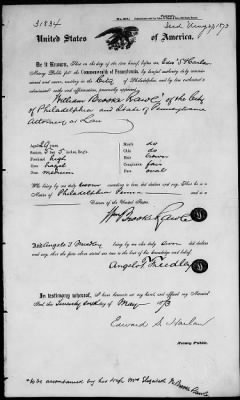 31834
Issd May 23/73
United States of America.
Be it Known, That on the day of the date hereof, before me Edw. S. Harlan
Notary Public for the Commonwealth of Pennsylvania, by lawful authority duty
and sworn, residing in the City of Philadelphia and by law authorized to
administer oaths and affirmations, personally appeared
William Brooke Rawle Esq. of the City
of Philadelphia and State of Pennsylvania
Attorney at Law
Age 29 years Mouth do
5 feet 5 inches, Engl. Chin do
Forehead high Hair brown
Eyes hazel Complexion fair
Nose medium Face oval
who being by me duly sworn according to law doth declare and say, That he is a
Native of Philadelphia Penna
Citizen of the United States.
Wm Brooke Rawle
And Angelo T. Freedley being by me also duly sworn doth declare
and say, that the facts above stated are true to the best of his knowledge and belief.
Angelo T. Freedley
In testimony whereof, I have hereunto set my hand and affixed my Notarial
Seal, the Twenty second day of May 1873
Edward S. Harlan
Notary Public.
"To be accompanied by his wife Mrs Elizabeth N. Brooke Rawle